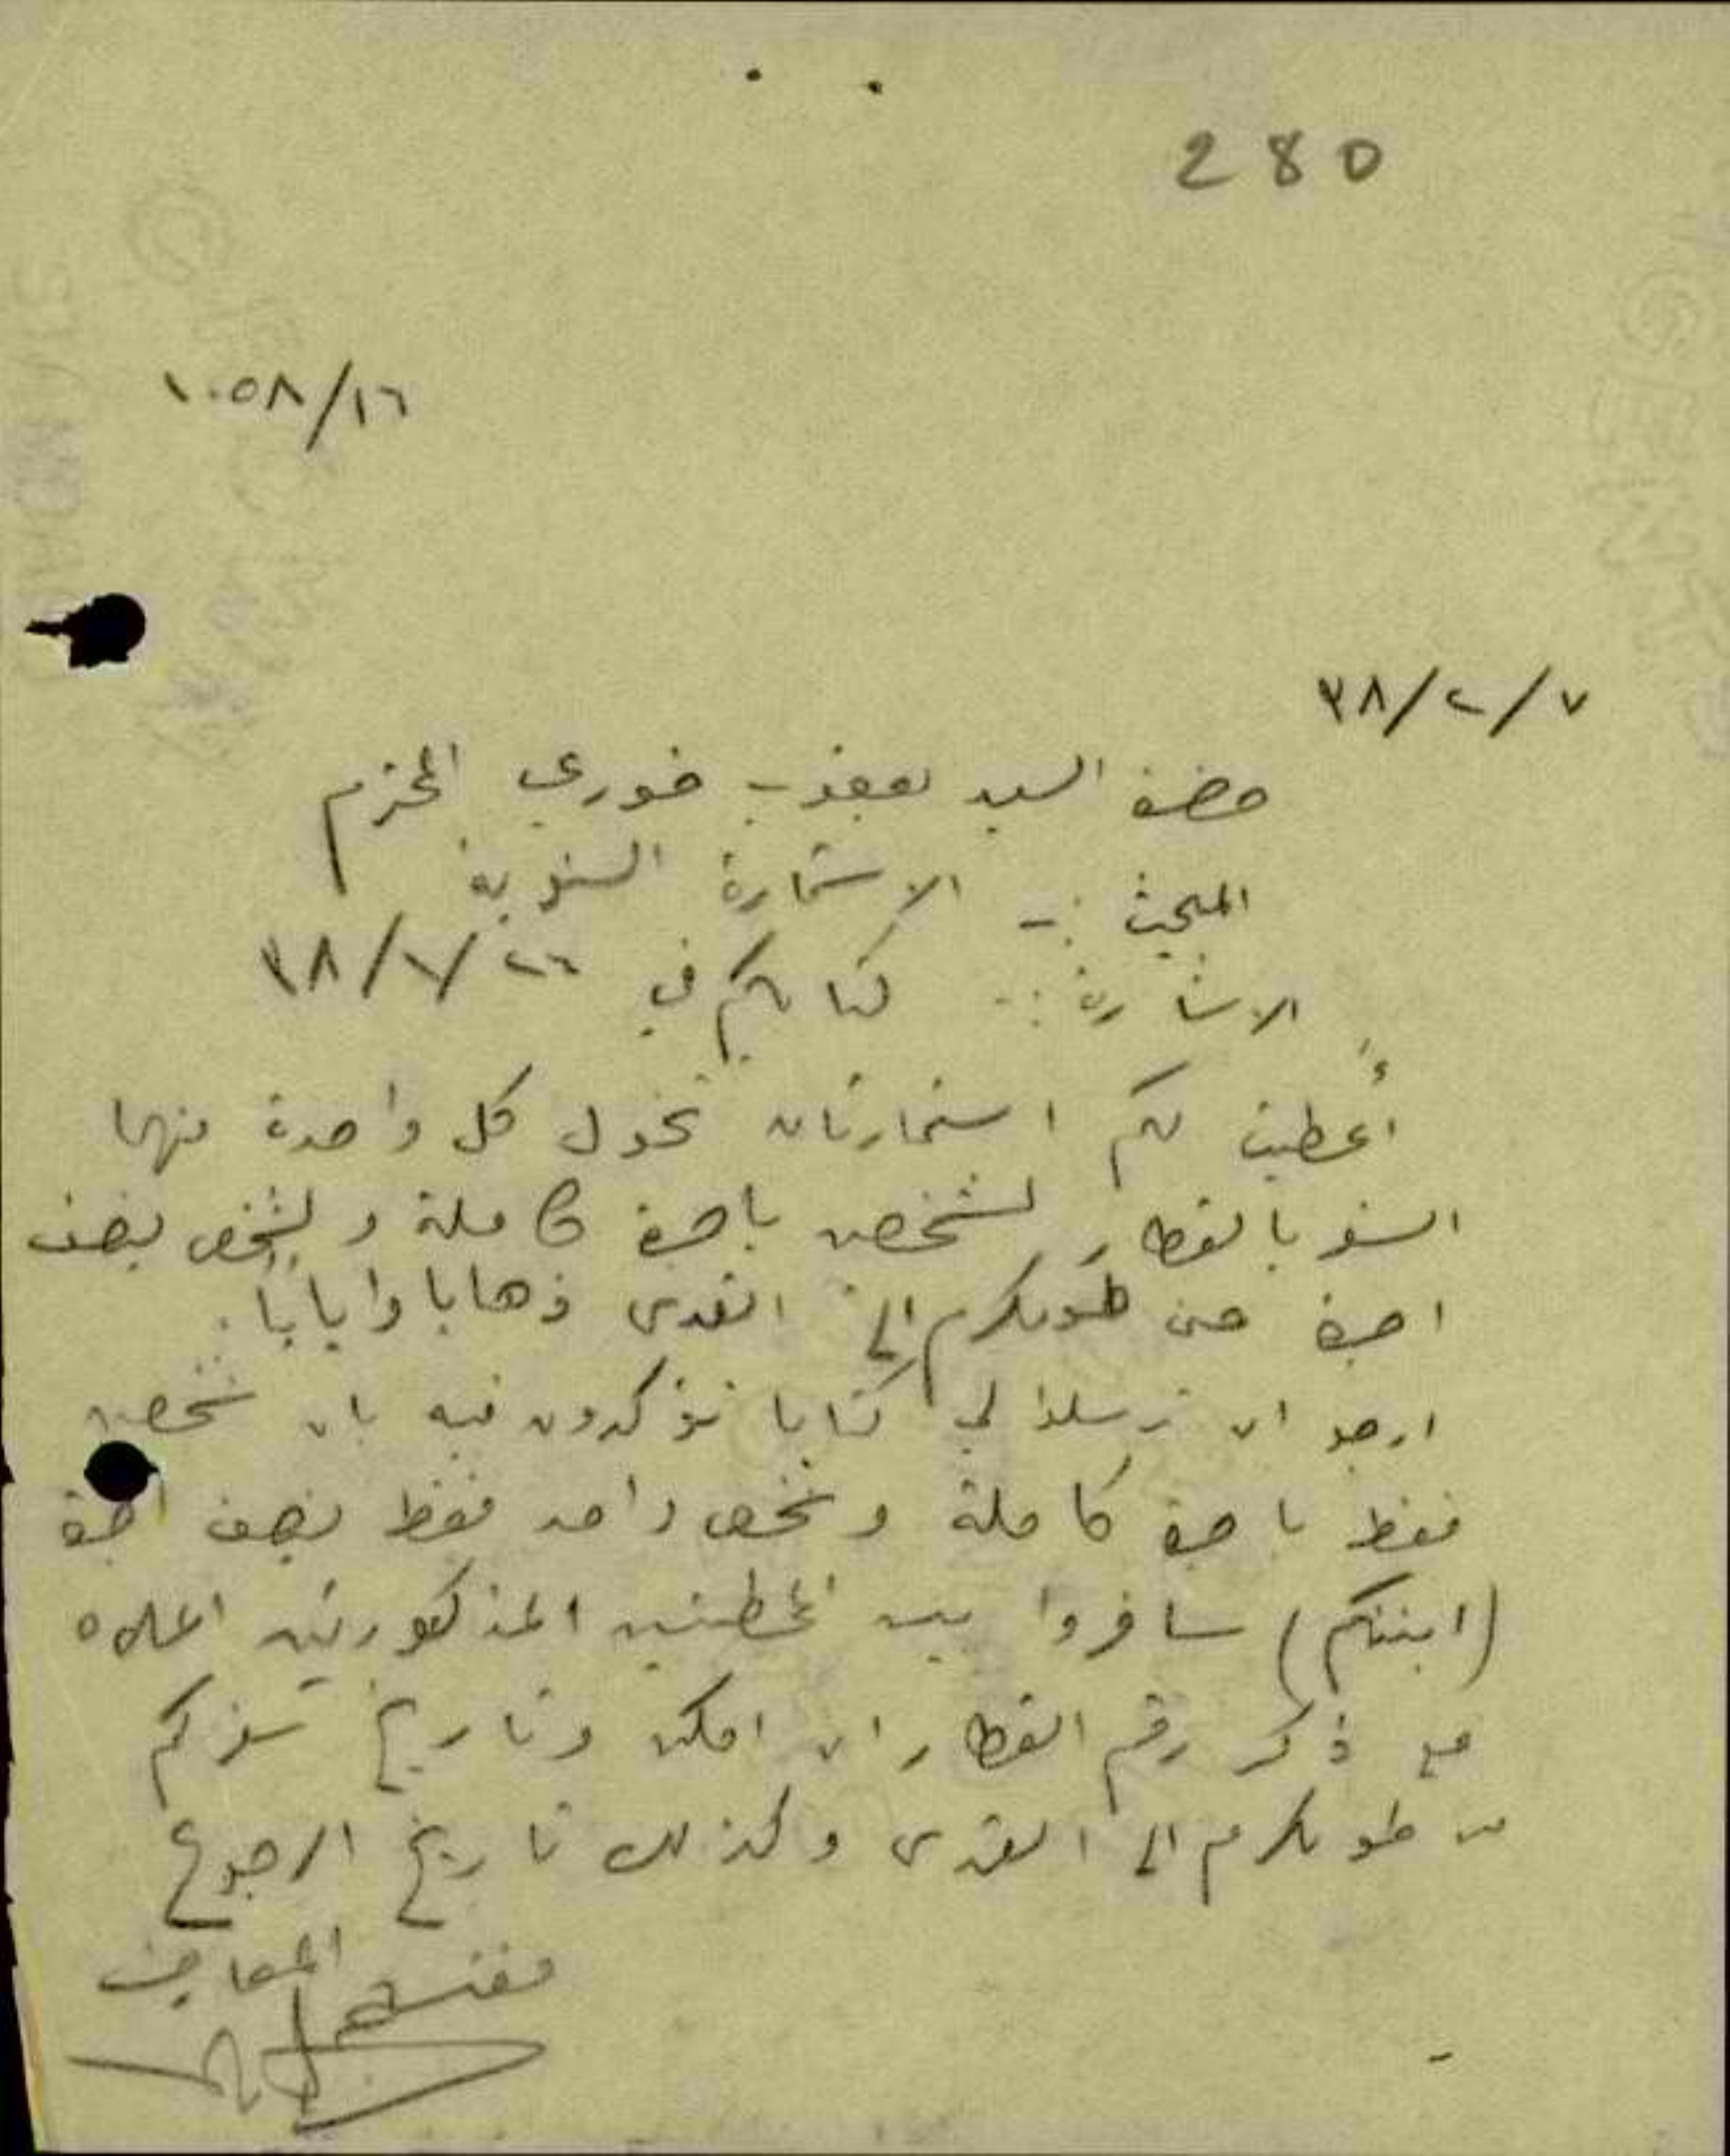 280
١٠٥٨/١٦
٣٨/٢/٧
حضرة السيد يعقوب خوري المحترم
المبحث :- الاستمارة السنوية
الاشارة :- كتابكم في ٣٨/١/٢٦
أعطيت لكم استمارتان تخول كل واحدة منهما
السفر بالقطار لشخصين باجرة كاملة ولشخص بنصف
اجرة من طولكرم الى القدس ذهابا وايابا.
ارجو ان ترسلوا لي كتابا تؤكدون فيه بان شخصين
فقط باجرة كاملة وشخص واحد فقط بنصف اجرة
(ابنتكم) سافروا بين المحطتين المذكورتين اعلاه
مع ذكر رقم القطار ان امكن وتاريخ سفركم
من طولكرم الى القدس وكذلك تاريخ الرجوع
مفتش المعارف